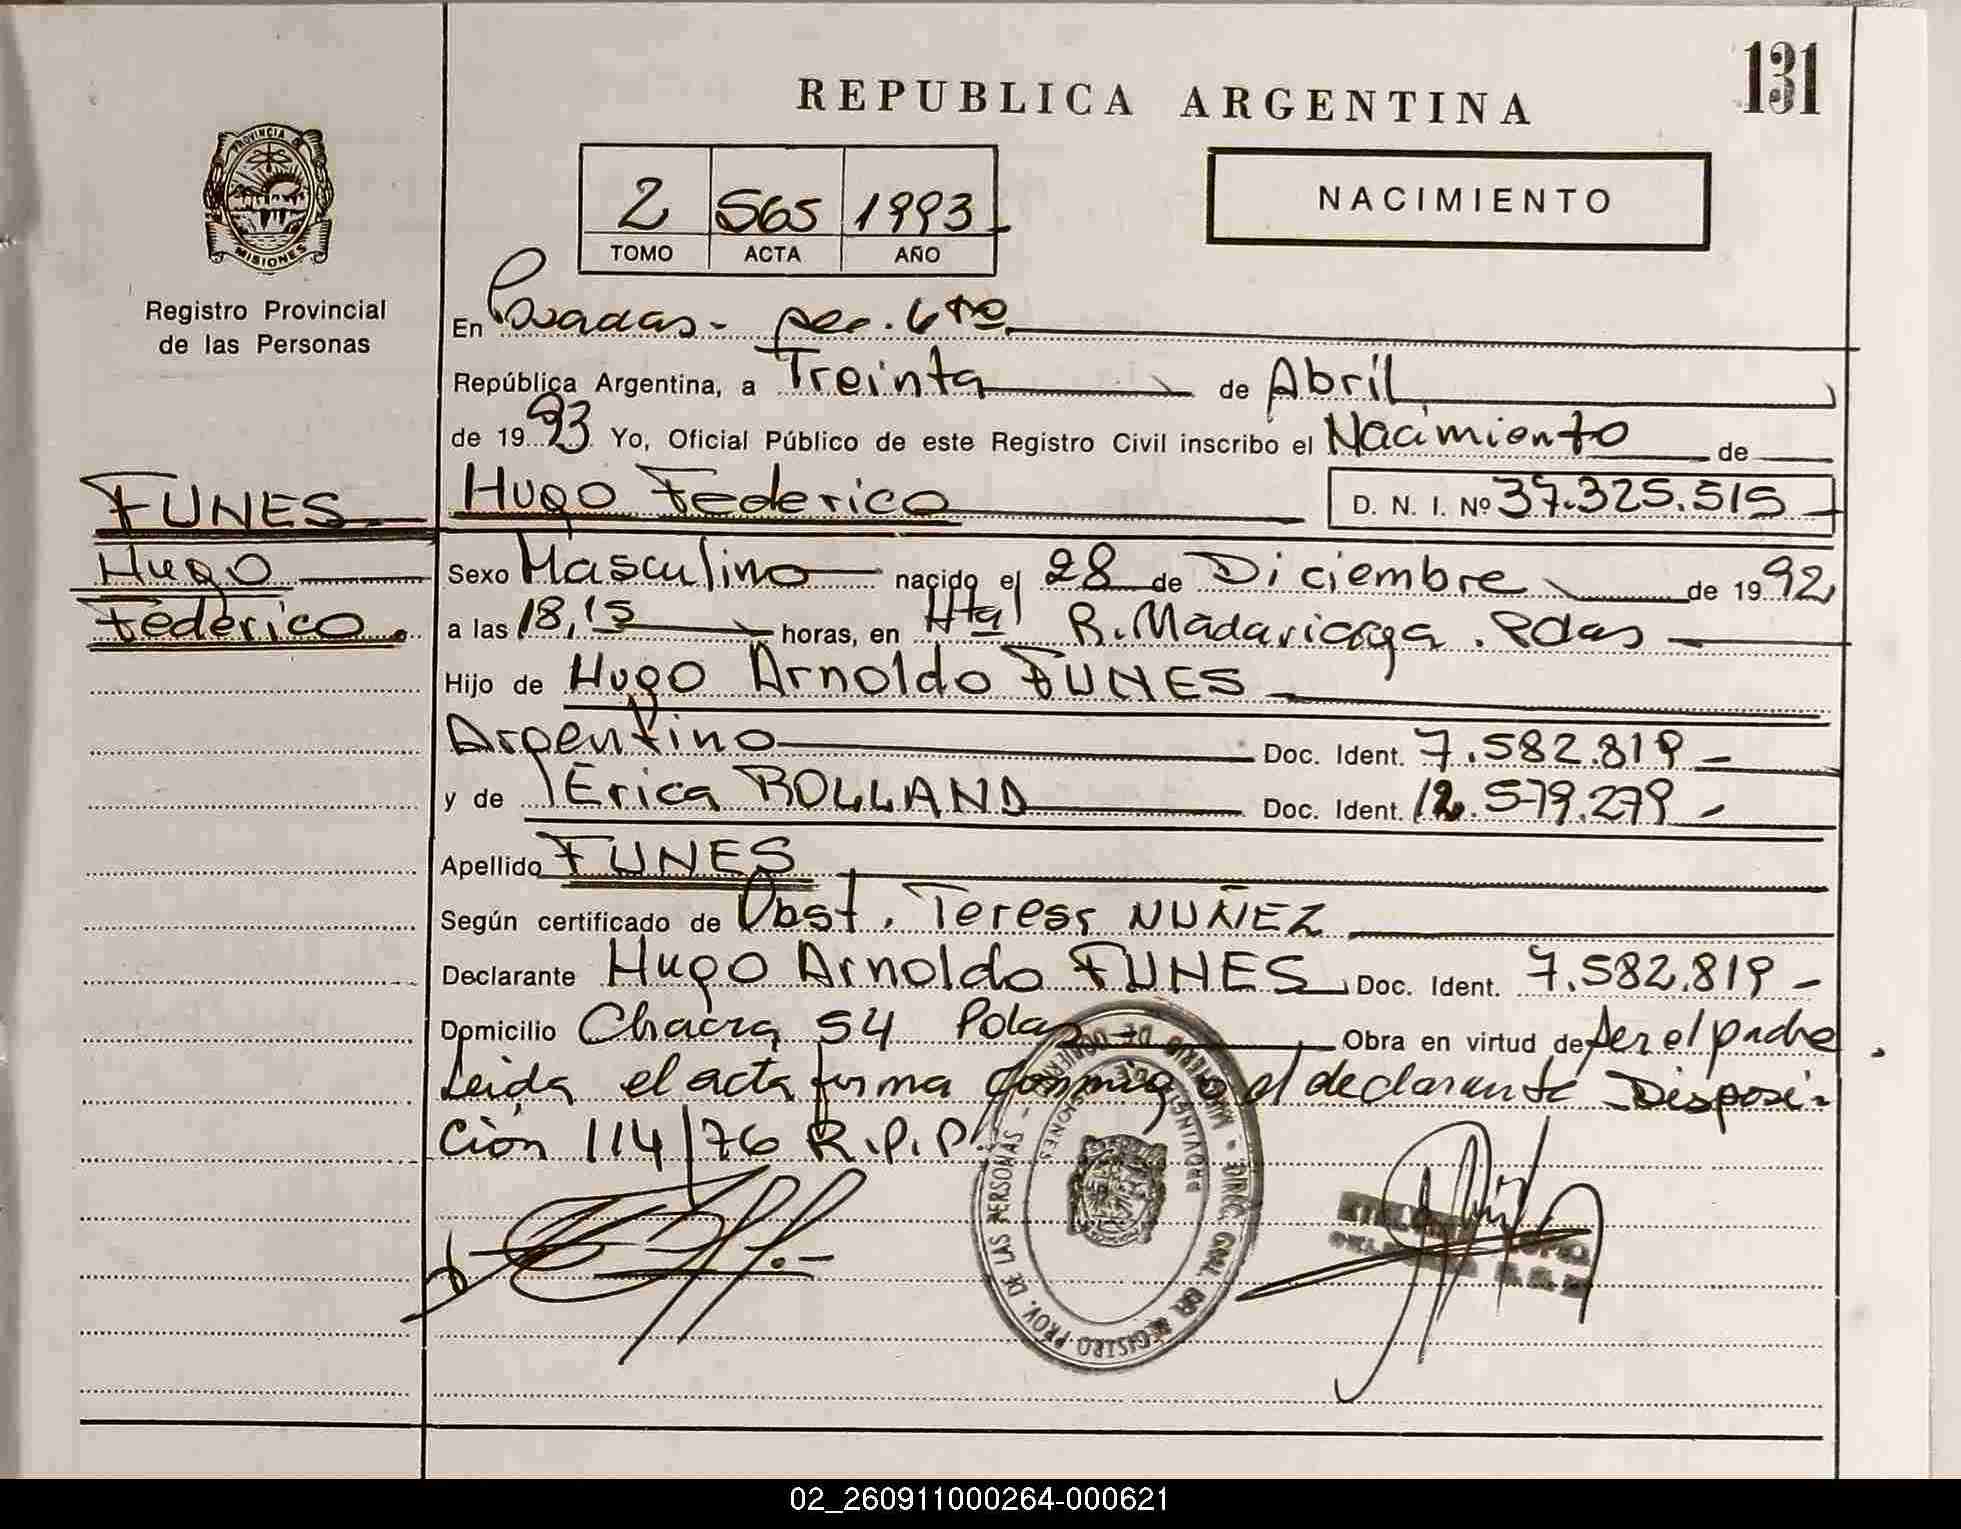 131
REPUBLICA ARGENTINA
PROVINCIA DE
MISIONES
2 565 1993
TOMO ACTA AÑO
NACIMIENTO
Registro Provincial
de las Personas
En Posadas - sec. 6ta
República Argentina, a Treinta de Abril
de 1993 Yo, Oficial Público de este Registro Civil inscribo el Nacimiento de
FUNES
Hugo
Federico.
Hugo Federico D. N. I. Nº 37.325.515
Sexo Masculino nacido el 28 de Diciembre de 1992
a las 18,15 horas, en Htal R. Madariaga. Pdas
Hijo de Hugo Arnoldo FUNES
Argentino Doc. Ident. 7.582.819 -
y de Erica ROLLAND Doc. Ident. 12.579.279 -
Apellido FUNES
Según certificado de Obst. Teresa NUÑEZ
Declarante Hugo Arnoldo FUNES Doc. Ident. 7.582.819 -
Domicilio Chacra 54 Pdas Obra en virtud de ser el padre.
Leida el acta firma conmigo el declarante Disposi-
ción 114/76 R.P.P.
DIREC. GRAL. DEL REGISTRO PROV. DE LAS PERSONAS - MINISTERIO DE GOBIERNO
PROVINCIA DE MISIONES
02_260911000264-000621